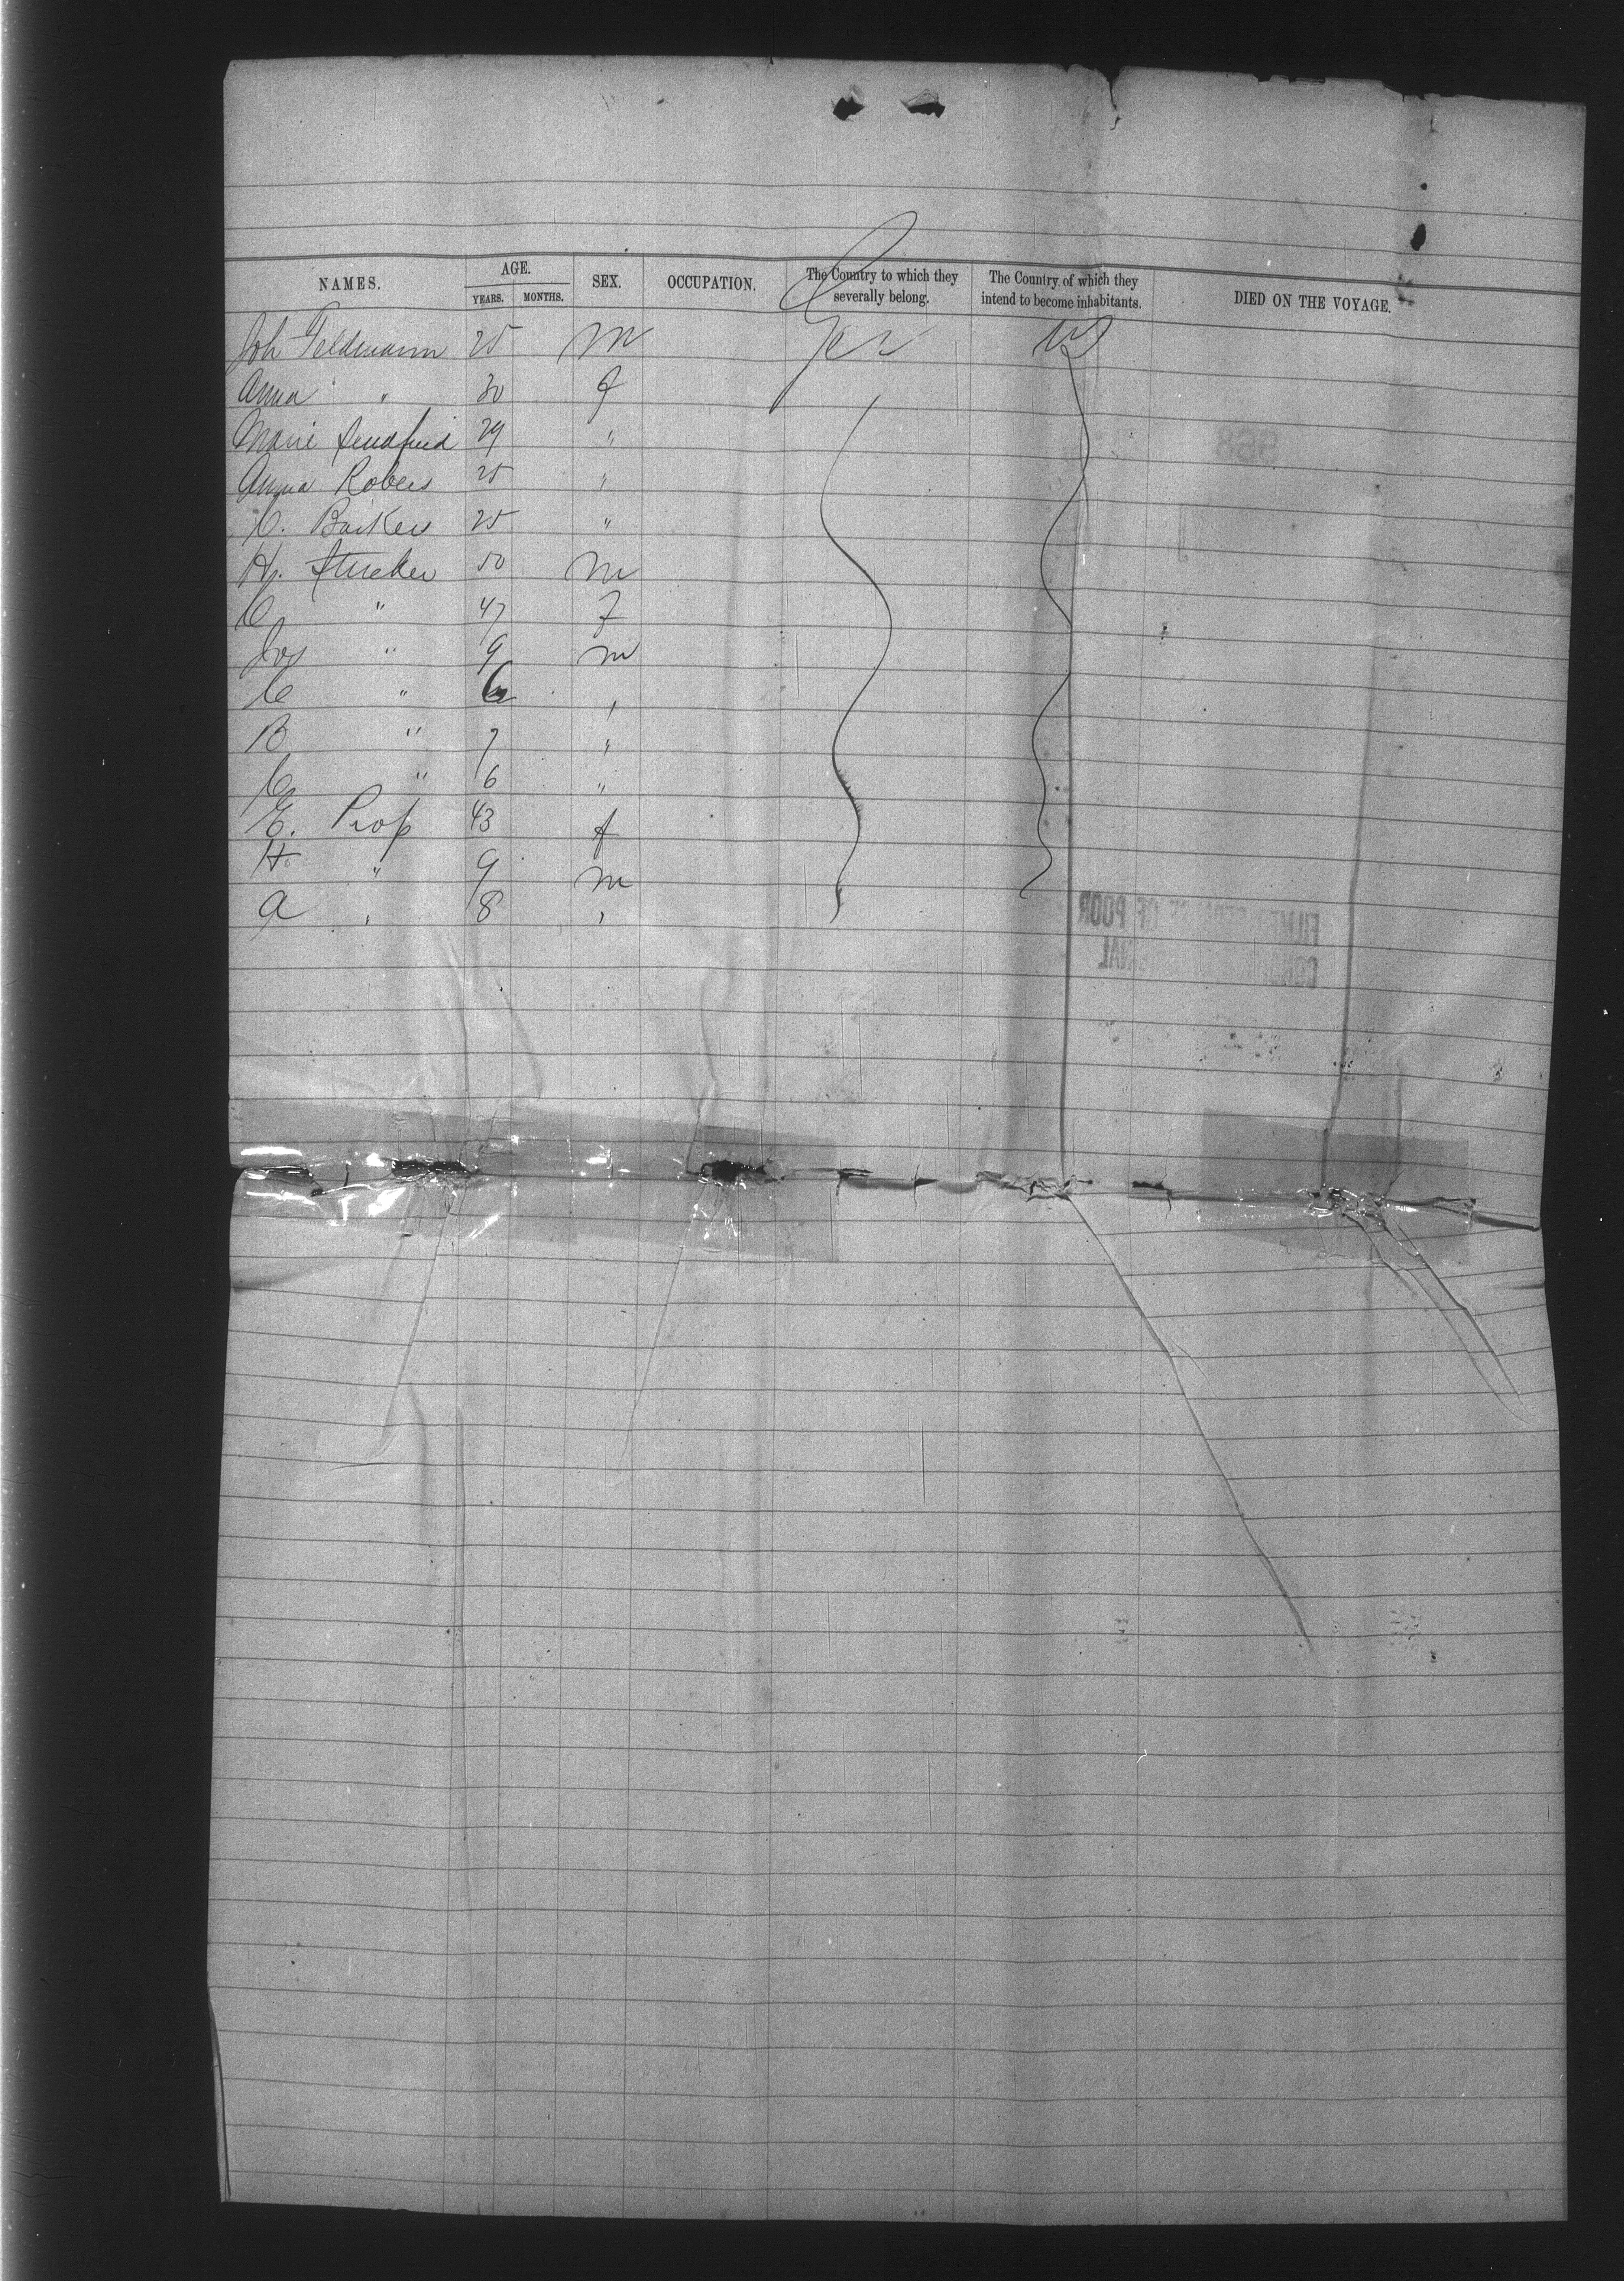 NAMES. AGE. SEX. OCCUPATION. The Country to which they severally belong. The Country of which they intend to become inhabitants. DIED ON THE VOYAGE.
YEARS. MONTHS.
Joh Feldmann 25 m Ger US
Anna " 30 f
Marie 29 "
Anna Robers 25 "
C. Barker 25 "
H. Stucker 50 m
C " 47 f
Jos " 9 m
C " 6 "
B " 7 "
C " 6 "
E. Prop 43 f
H. " 9 m
A " 8 "